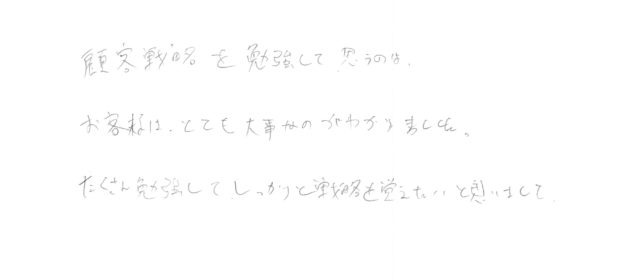 顧客戦略を勉強して思うのは、
お客様は、とても大事なのがわかりました。
たくさん勉強してしっかりと戦略を覚えたいと思いまして